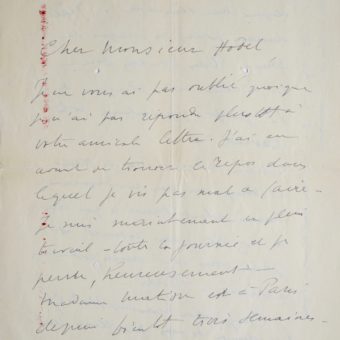 Cher Monsieur Hodel
Je ne vous ai pas oublié quoique
je n'ai pas répondu plutôt à
votre amicale lettre. J'ai eu
avant de trouver le repos dans
lequel je vis pas mal à faire -
je suis maintenant en plein
travail - toute la journée et je
pense, heureusement -
Madame Matisse est à Paris
depuis bientôt trois semaines -